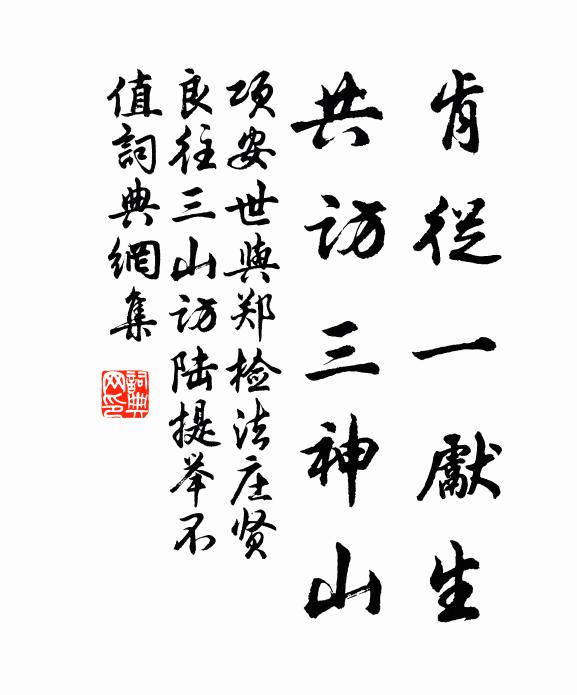 肯從一獻生
共訪三神山
项安世與郑检法庄贤
良往三山訪陆提举不
值詞典網集
詞典
网印